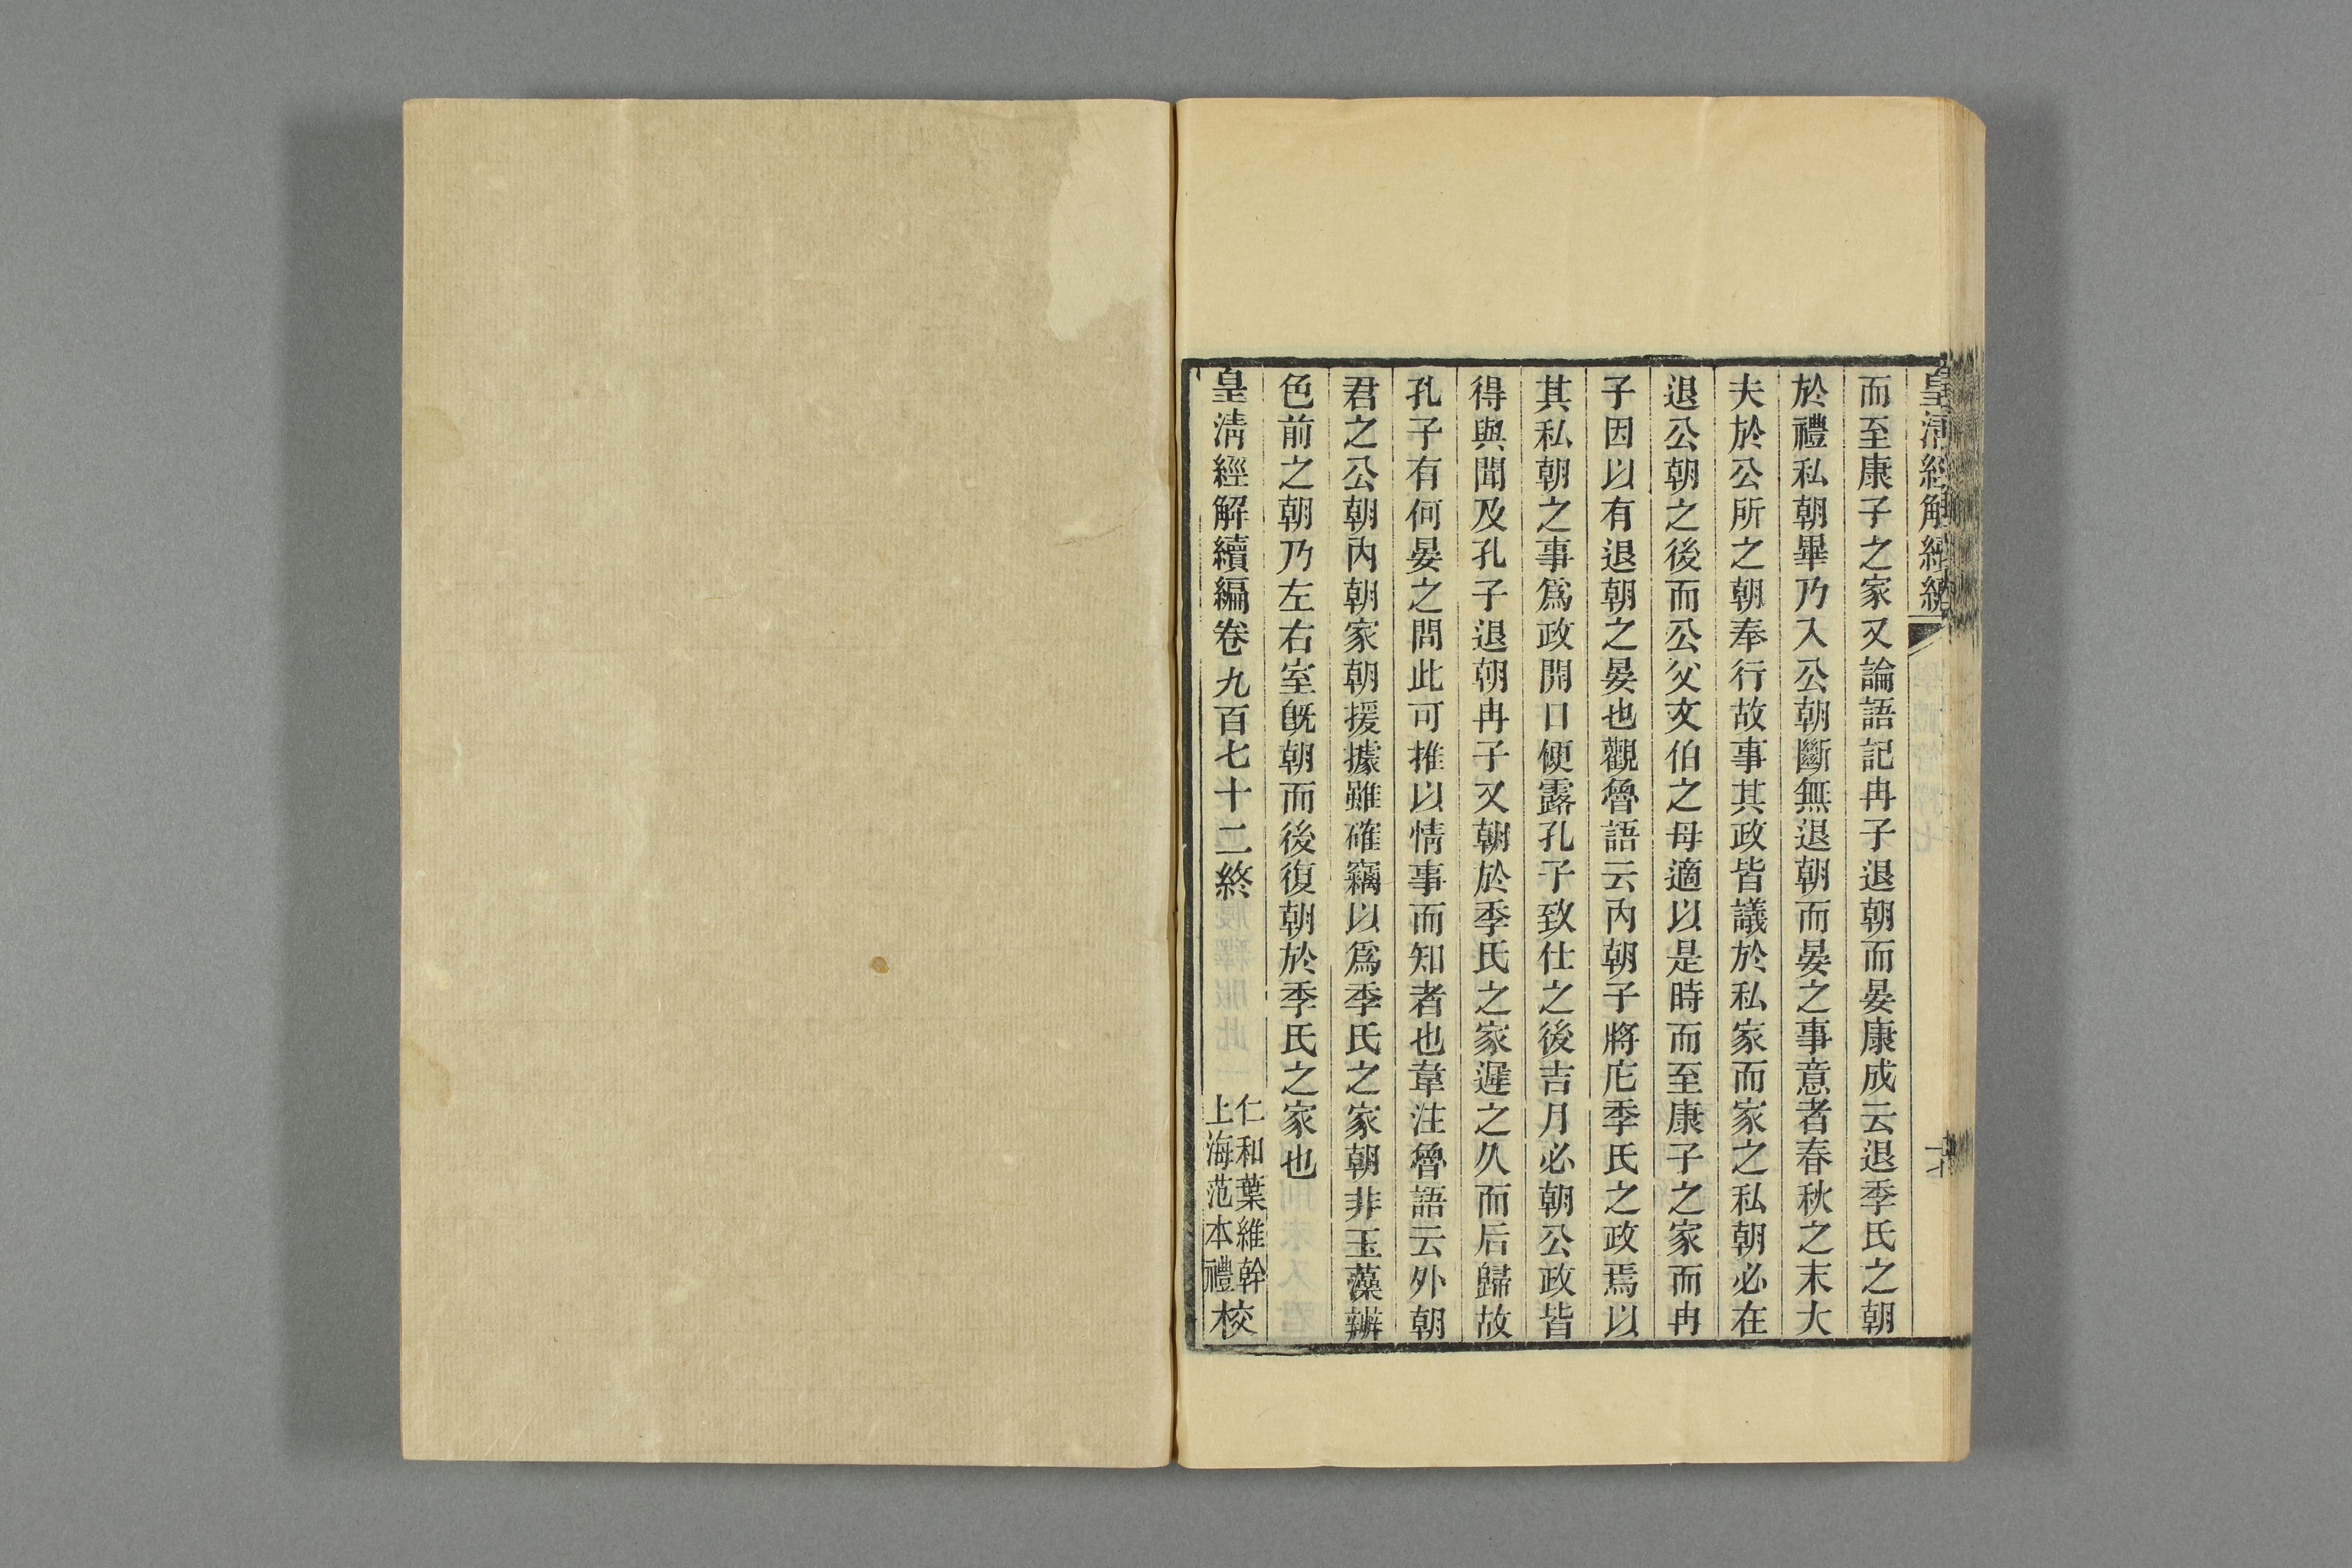 皇清經解續編
而至康子之家又論語記冉子退朝而晏康成云退季氏之朝
於禮私朝畢乃入公朝斷無退朝而晏之事意者春秋之末大
夫於公所之朝奉行故事其政皆議於私家而家之私朝必在
退公朝之後而公父文伯之母適以是時而至康子之家而冉
子因以有退朝之晏也觀魯語云內朝子將庀季氏之政焉以
其私朝之事爲政開口便露孔子致仕之後吉月必朝公政皆
得與聞及孔子退朝冉子又朝於季氏之家遲之久而后歸故
孔子有何晏之問此可推以情事而知者也韋注魯語云外朝
君之公朝內朝家朝援據雖確竊以爲季氏之家朝非玉藻辨
色前之朝乃左右室旣朝而後復朝於季氏之家也
皇清經解續編卷九百七十二終
仁和葉維幹
上海范本禮校